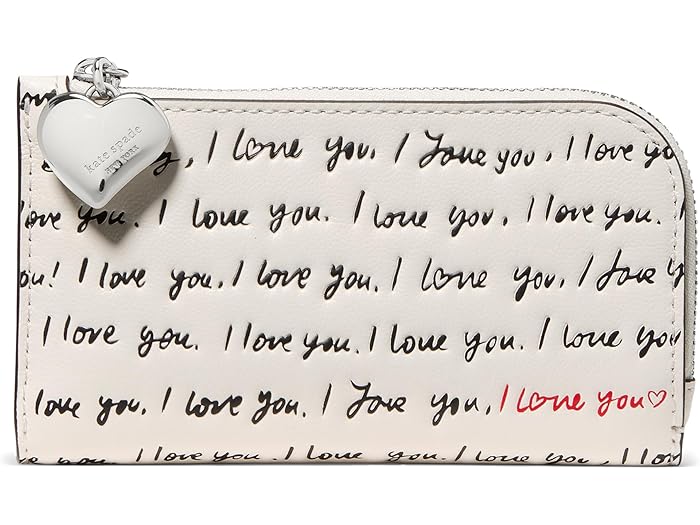 kate spade
NEW YORK
, I love you. I love you, I love yo
love you. I love you. I love you, I love you. I
you! I love you. I love you. I love you, I love y
I love you. I love you. I love you. I love you
love you. I love you. I love you, I love you♡
I love you. I love you. I love you, I lov